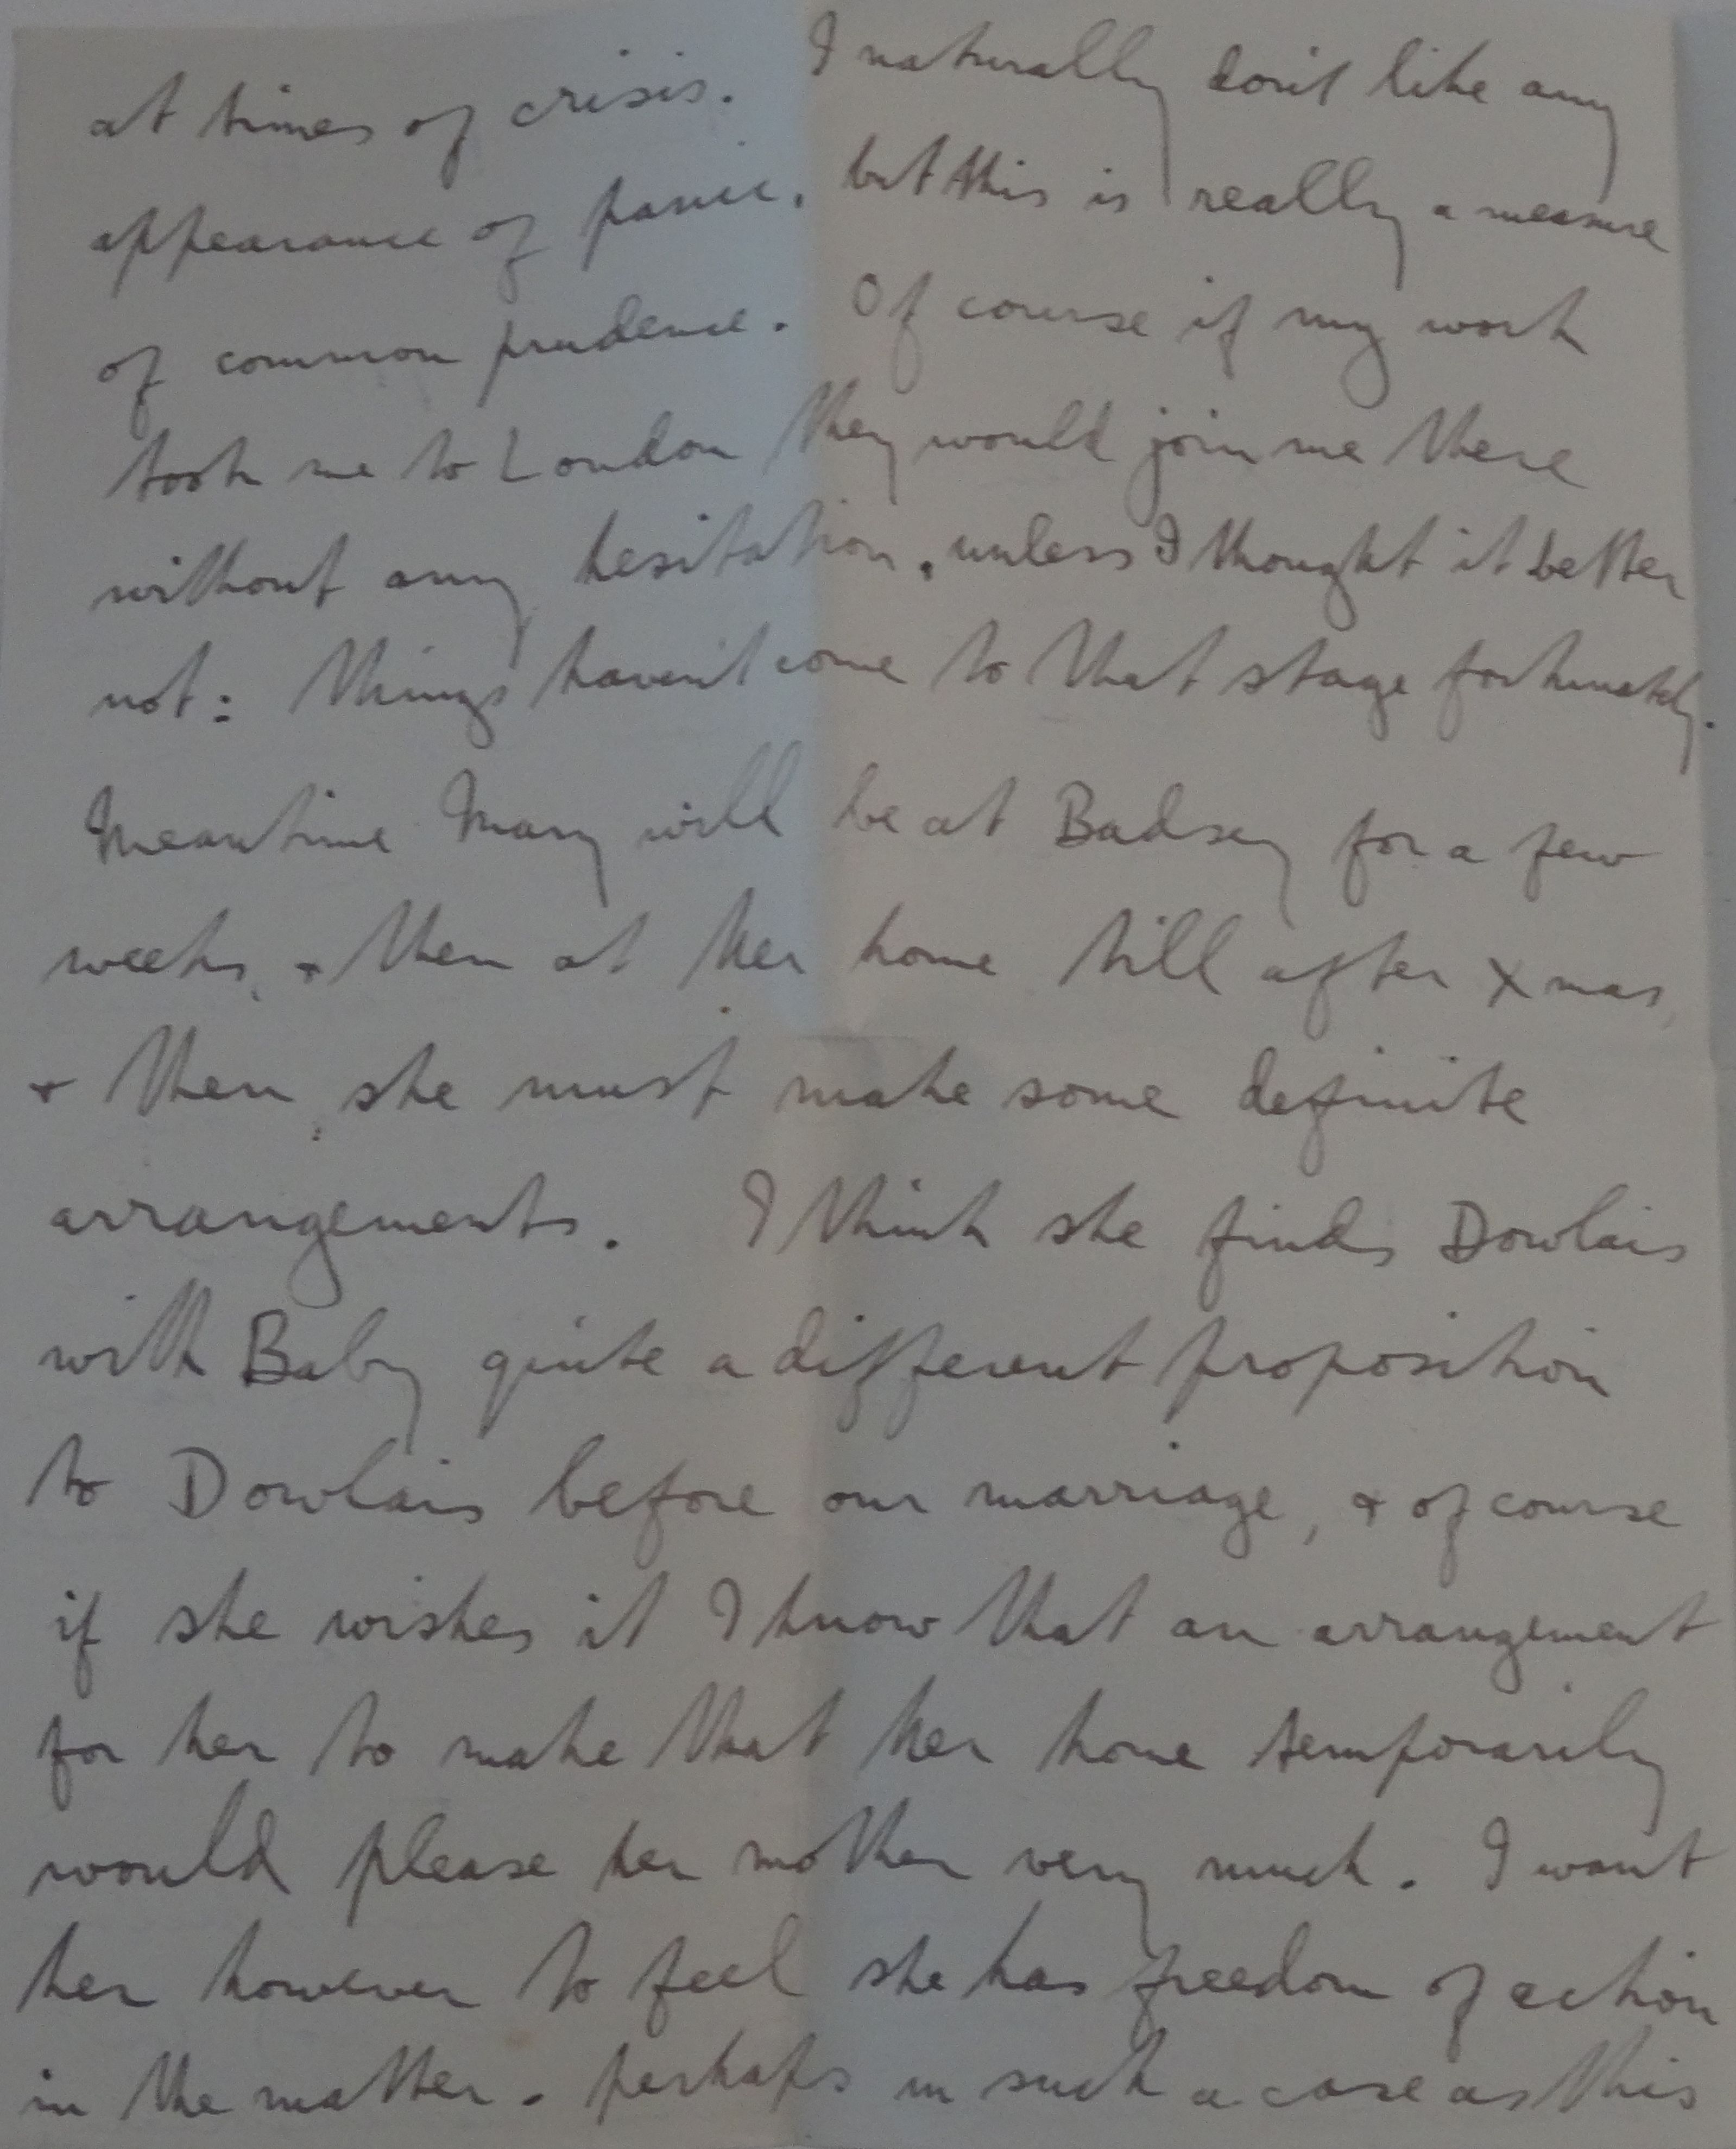 at times of crisis. I naturally don't like any
appearance of panic, but this is really a measure
of common prudence. Of course if my work
took me to London they would join me there
without any hesitation, unless I thought it better
not: things haven't come to that stage fortunately.
Meantime Mary will be at Badsey for a few
weeks, & then at her home till after Xmas,
& then she must make some definite
arrangements. I think she finds Dowlais
with Baby quite a different proposition
to Dowlais before our marriage, & of course
if she wishes it I know that an arrangement
for her to make that her home temporarily
would please her mother very much. I want
her however to feel she has freedom of action
in the matter. perhaps in such a case as this